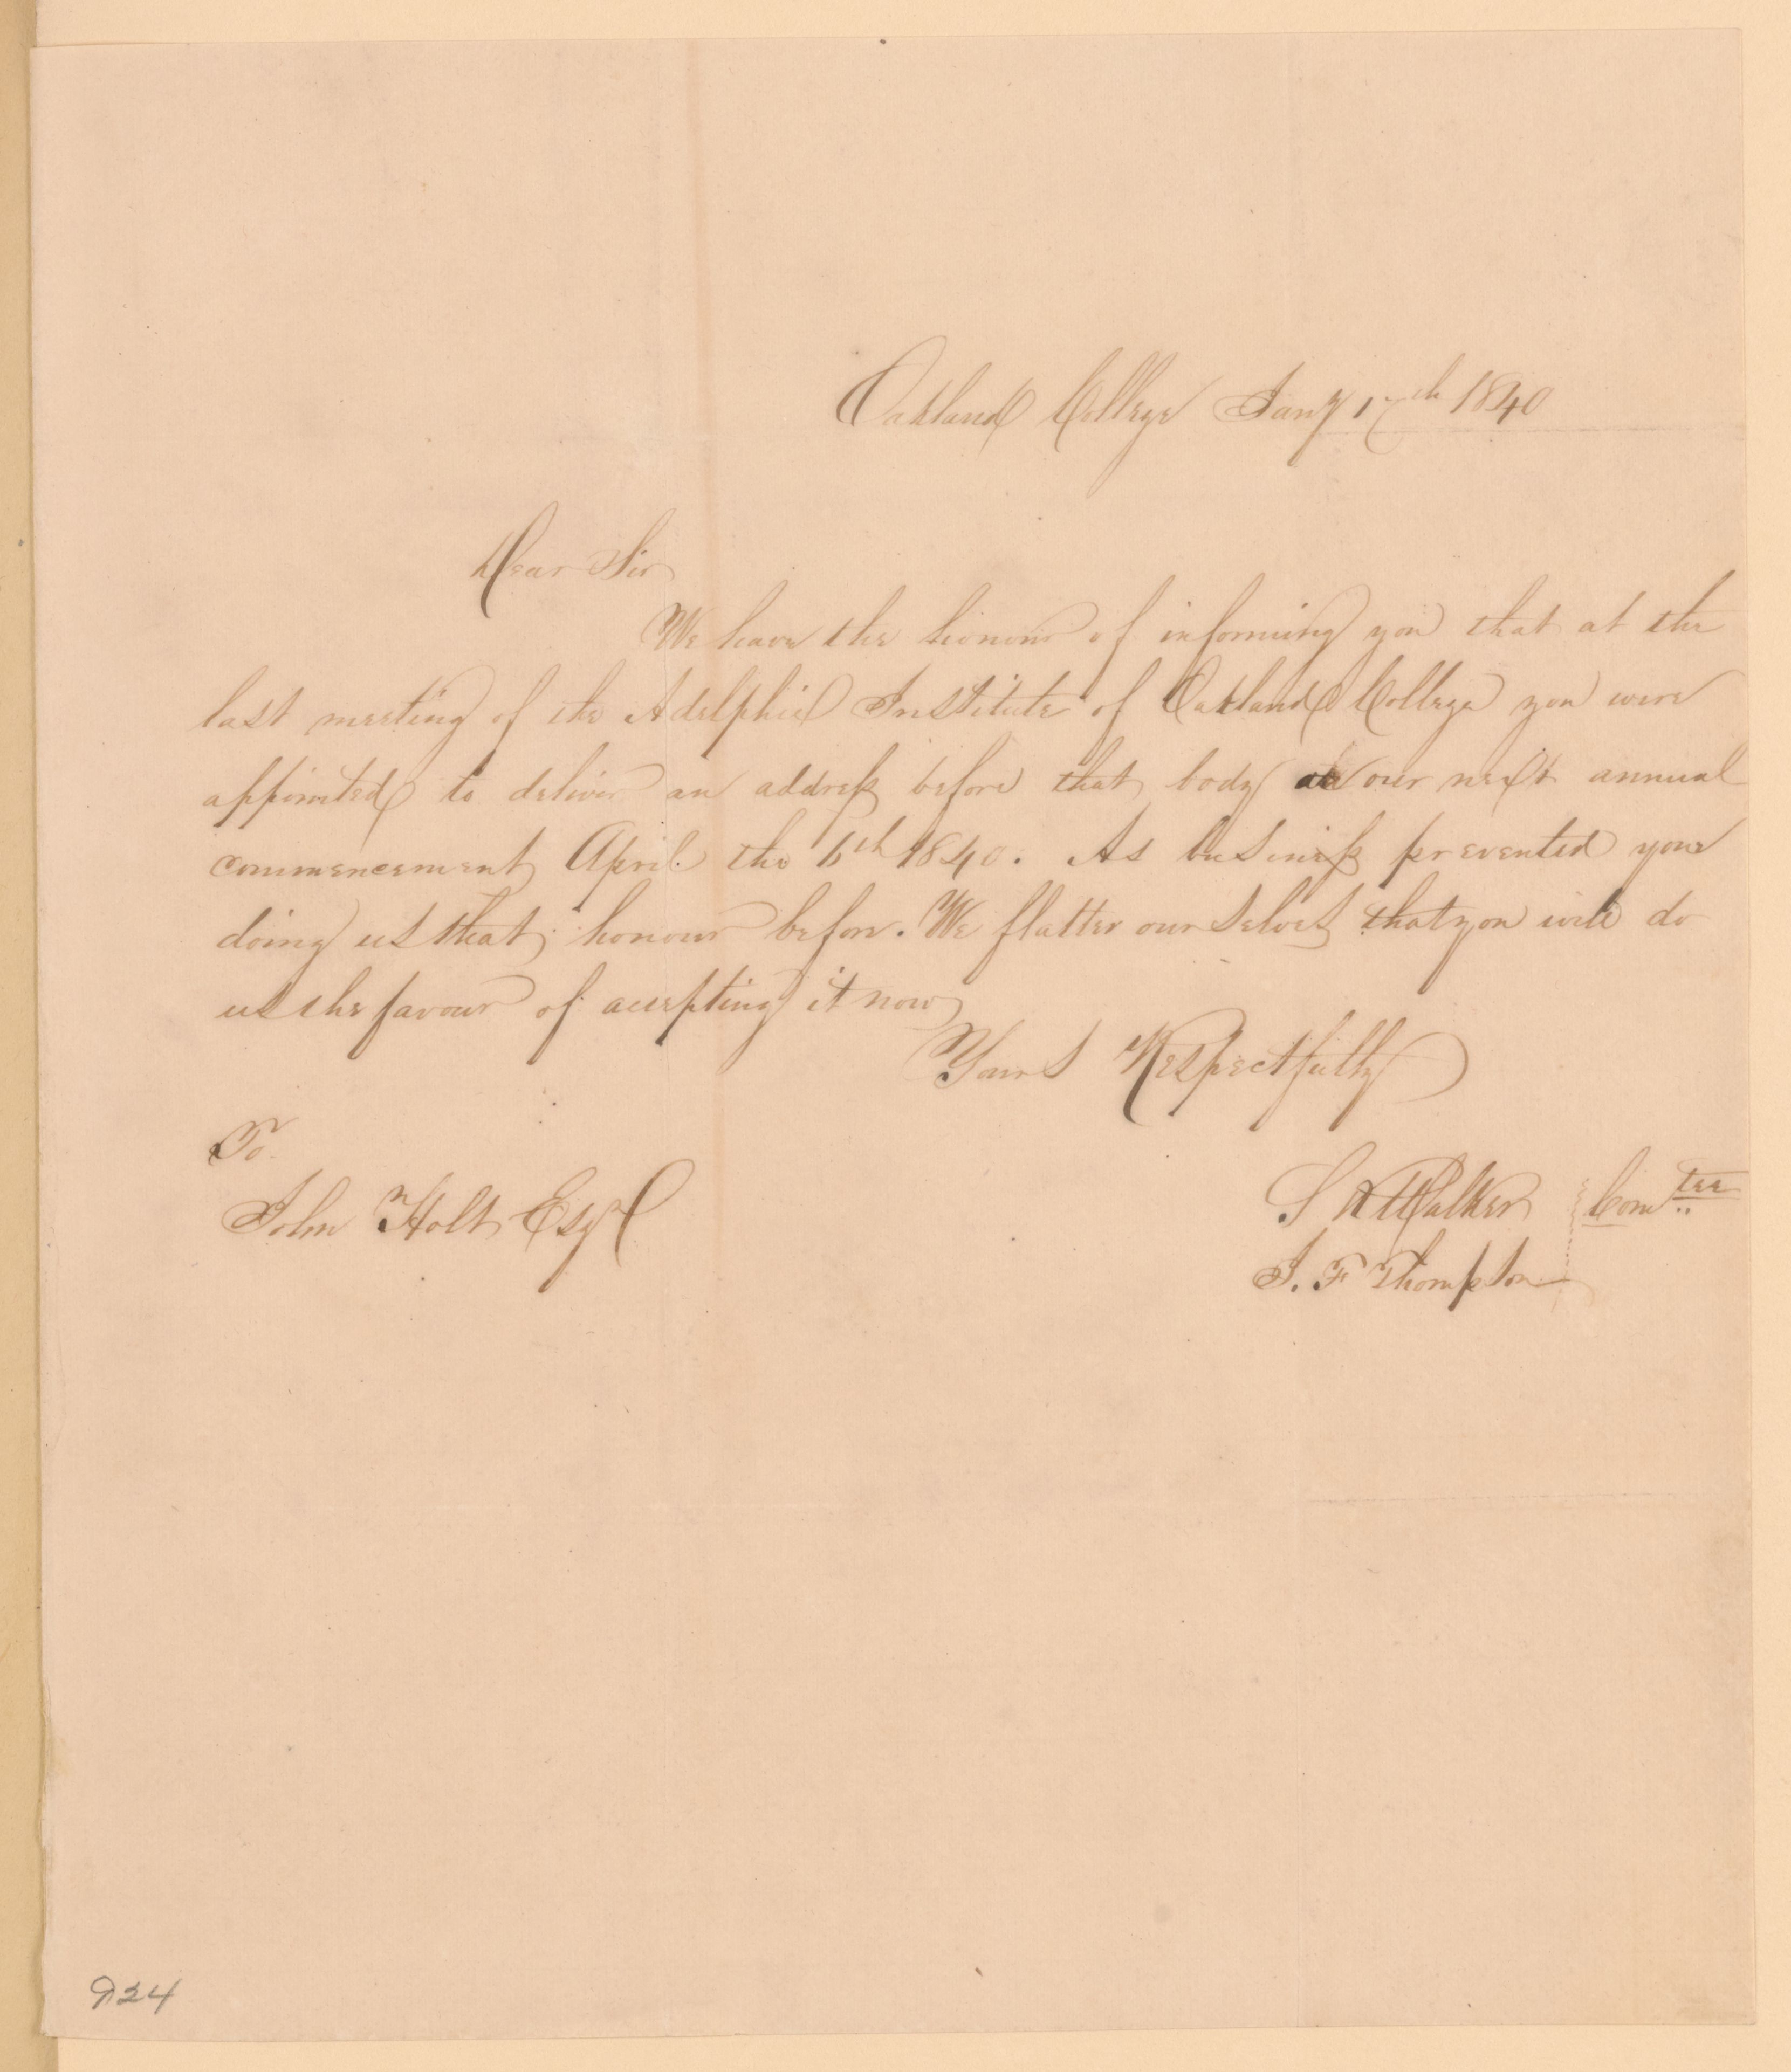 Oakland College Jany 17th 1840
Dear Sir
We have the honour of informing you that at the
last meeting of the Adelphic Institute of Oakland College you were
appointed to deliver an address before that body at our next annual
commencement April the 6th 1840. As business prevented you
doing us that honour before. We flatter ourselves that you will do
us the favour of accepting it now
Yours Respectfully
To
John Holt Esqr
S R Walker Comtee
J. F Thompson
924